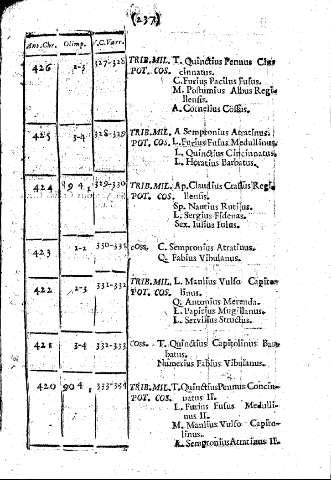 (237)
Ans. Chr. Olimp. V.C. Varr.
426 2-3 327-328 TRIB. MIL. T. Quinctius Pennus Cin
POT. COS. cinnatus.
C. Furius Pacilus Fusus.
M. Postumius Albus Regi
llensis.
A. Cornelius Cossus.
425 3-4 328-329 TRIB. MIL. A Sempronius Atratinus.
POT. COS. L. Furius Fusus Medullinus.
L. Quinctius Cincinnatus.
L. Horatius Barbatus.
424 94, 329-330 TRIB. MIL. Ap. Claudius Crassus Regi
POT. COS. llensis.
Sp. Nautius Rutilus.
L. Sergius Fidenas.
Sex. Iulius Iulus.
423 1-2 330-331 coss. C. Sempronius Atratinus.
Q. Fabius Vibulanus.
422 2-3 331-332 TRIB. MIL. L. Manlius Vulso Capito
POT. COS. linus.
Q. Antonius Merenda.
L. Papirius Mugillanus.
L. Servilius Structus.
421 3-4 332-333 coss. T. Quinctius Capitolinus Bar
batus.
Numerius Fabius Vibulanus.
420 904, 333-334 TRIB. MIL. T. Quinctius Pennus Concin-
POT. COS. natus II.
L. Furius Fusus Medulli-
nus II.
M. Manlius Vulso Capito-
linus.
A. Sempronius Atratinus II.